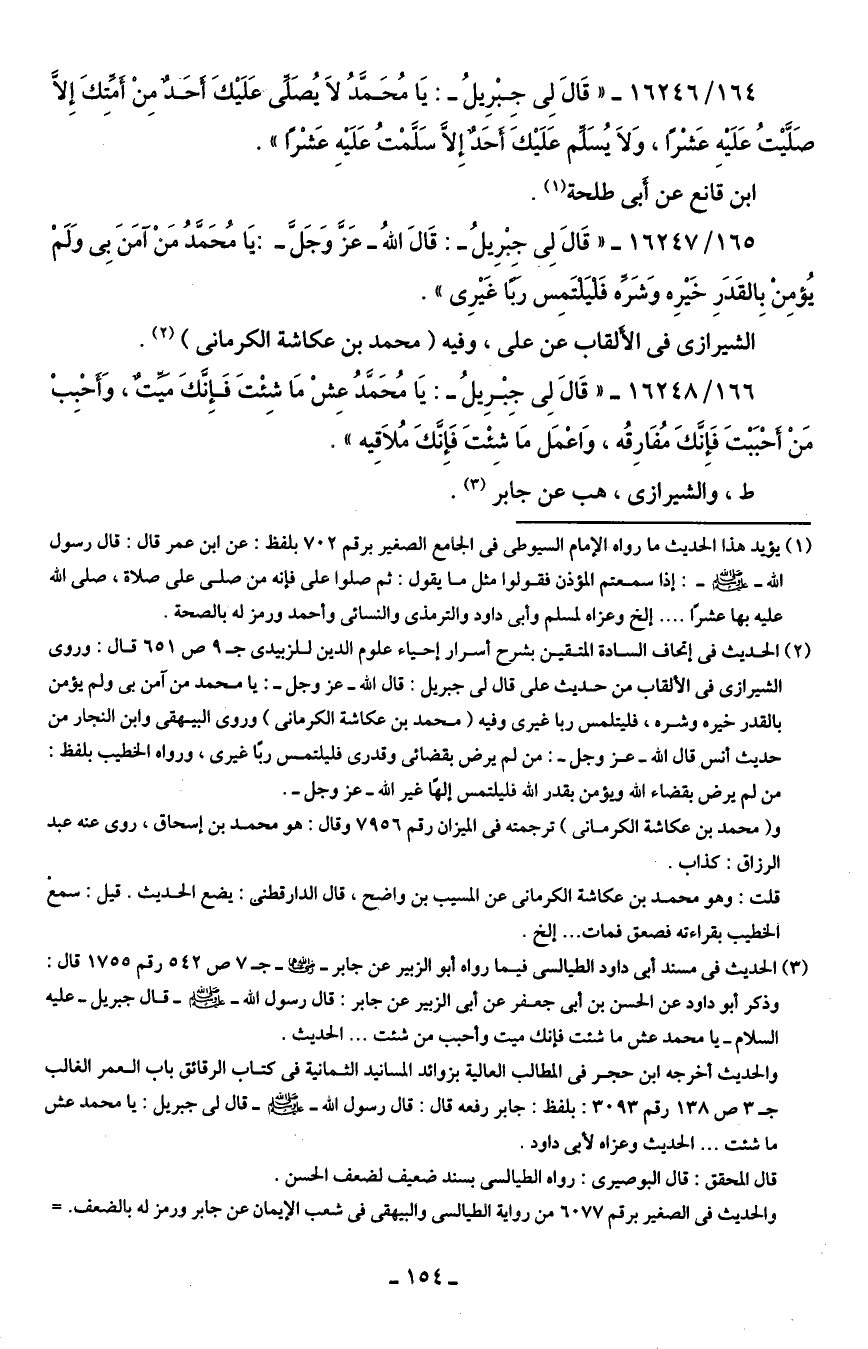 ١٦٢٤٦/١٦٤ ـ « قَالَ لِى جِبْرِيلُ ـ : يَا مُحَمَّدُ لاَ يُصَلِّى عَلَيْكَ أَحَدٌ مِنْ أُمَّتِكَ إِلاَّ
صَلَّيْتُ عَلَيْهِ عَشْرًا ، وَلاَ يُسَلِّم عَلَيْكَ أَحَدٌ إِلاَّ سَلَّمْتُ عَلَيْهِ عَشْرًا » .
ابن قانع عن أَبى طلحة(١) .
١٦٢٤٧/١٦٥ ـ « قَالَ لِى جِبْرِيلُ ـ : قَالَ اللهُ ـ عَزَّ وَجَلَّ ـ :يَا مُحَمَّدُ مَنْ آمَنَ بِى وَلَمْ
يُؤمِنْ بِالقَدَرِ خَيْرِهِ وَشَرِّهِ فَلْيَلْتَمِس رَبًا غَيْرِى » .
الشيرازى فى الألقاب عن على ، وفيه ( محمد بن عكاشة الكرمانى ) (٢) .
١٦٢٤٨/١٦٦ ـ « قَالَ لِى جِبْرِيلُ ـ : يَا مُحَمَّدُ عِشْ مَا شِئْتَ فَإِنَّكَ مَيِّتٌ ، وَأَحْبِبْ
مَنْ أَحْبَبْتَ فَإِنَّكَ مُفَارِقُه ، وَاعْمَل مَا شِئْتَ فَإِنَّكَ مُلاَقِيه » .
ط ، والشيرازى ، هب عن جابر (٣) .
(١) يؤيد هذا الحديث ما رواه الإمام السيوطى فى الجامع الصغير برقم ٧٠٢ بلفظ : عن ابن عمر قال : قال رسول
الله ـ ﷺ ـ : إذا سمعتم المؤذن فقولوا مثل ما يقول : ثم صلوا على فإنه من صلى على صلاة ، صلى الله
عليه بها عشرًا .... إلخ وعزاه لمسلم وأبى داود والترمذى والنسائى وأحمد ورمز له بالصحة .
(٢) الحديث فى إتحاف السادة المتقين بشرح أسرار إحياء علوم الدين للزبيدى جـ ٩ ص ٦٥١ قال : وروى
الشيرازى فى الألقاب من حديث على قال لى جبريل : قال الله ـ عز وجل ـ : يا محمد من آمن بى ولم يؤمن
بالقدر خيره وشره ، فليتلمس ربا غيرى وفيه ( محمد بن عكاشة الكرمانى ) وروى البيهقى وابن النجار من
حديث أنس قال الله ـ عز وجل ـ : من لم يرض بقضائى وقدرى فليلتمس ربًا غيرى ، ورواه الخطيب بلفظ :
من لم يرض بقضاء الله ويؤمن بقدر الله فليلتمس إلهًا غير الله ـ عز وجل ـ .
و( محمد بن عكاشة الكرمانى ) ترجمته فى الميزان رقم ٧٩٥٦ وقال : هو محمد بن إسحاق ، روى عنه عبد
الرزاق : كذاب .
قلت : وهو محمد بن عكاشة الكرمانى عن المسيب بن واضح ، قال الدارقطنى : يضع الحديث . قيل : سمع
الخطيب بقراءته فصعق فمات... إلخ .
(٣) الحديث فى مسند أبى داود الطيالسى فيما رواه أبو الزبير عن جابر ـ رضي الله عنه ـ جـ ٧ ص ٥٤٢ رقم ١٧٥٥ قال :
وذكر أبو داود عن الحسن بن أبى جعفر عن أبى الزبير عن جابر : قال رسول الله ـ ﷺ ـ قال جبريل ـ عليه
السلام ـ يا محمد عش ما شئت فإنك ميت وأحبب من شئت ... الحديث .
والحديث أخرجه ابن حجر فى المطالب العالية بزوائد المسانيد الثمانية فى كتاب الرقائق باب العمر الغالب
جـ ٣ ص ١٣٨ رقم ٣٠٩٣ : بلفظ : جابر رفعه قال : قال رسول الله ـ ﷺ ـ قال لى جبريل : يا محمد عش
ما شئت ... الحديث وعزاه لأبى داود .
قال المحقق : قال البوصيرى : رواه الطيالسى بسند ضعيف لضعف الحسن .
والحديث فى الصغير برقم ٦٠٧٧ من رواية الطيالسى والبيهقى فى شعب الإيمان عن جابر ورمز له بالضعف. =
ـ ١٥٤ ـ